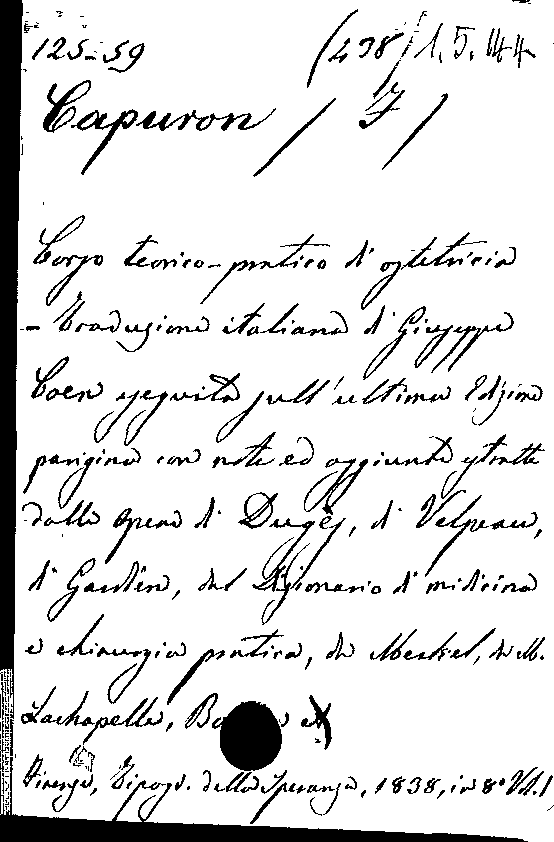 125-59 (438) 1.5.44
Capuron (J)
Corso teorico-pratico di ostetricia
- Traduzione italiana di Giuseppe
Coen eseguita sull'ultima Edizione
parigina con note ed aggiunte estratte
dalle opere di Dugès, di Velpeau,
di Gardien, del Dizionario di medicina
e chirurgia pratica, di Meckel, di M.
Lachapelle,
Firenze, Tipogr. della Speranza, 1838, in 8° Vol. 1